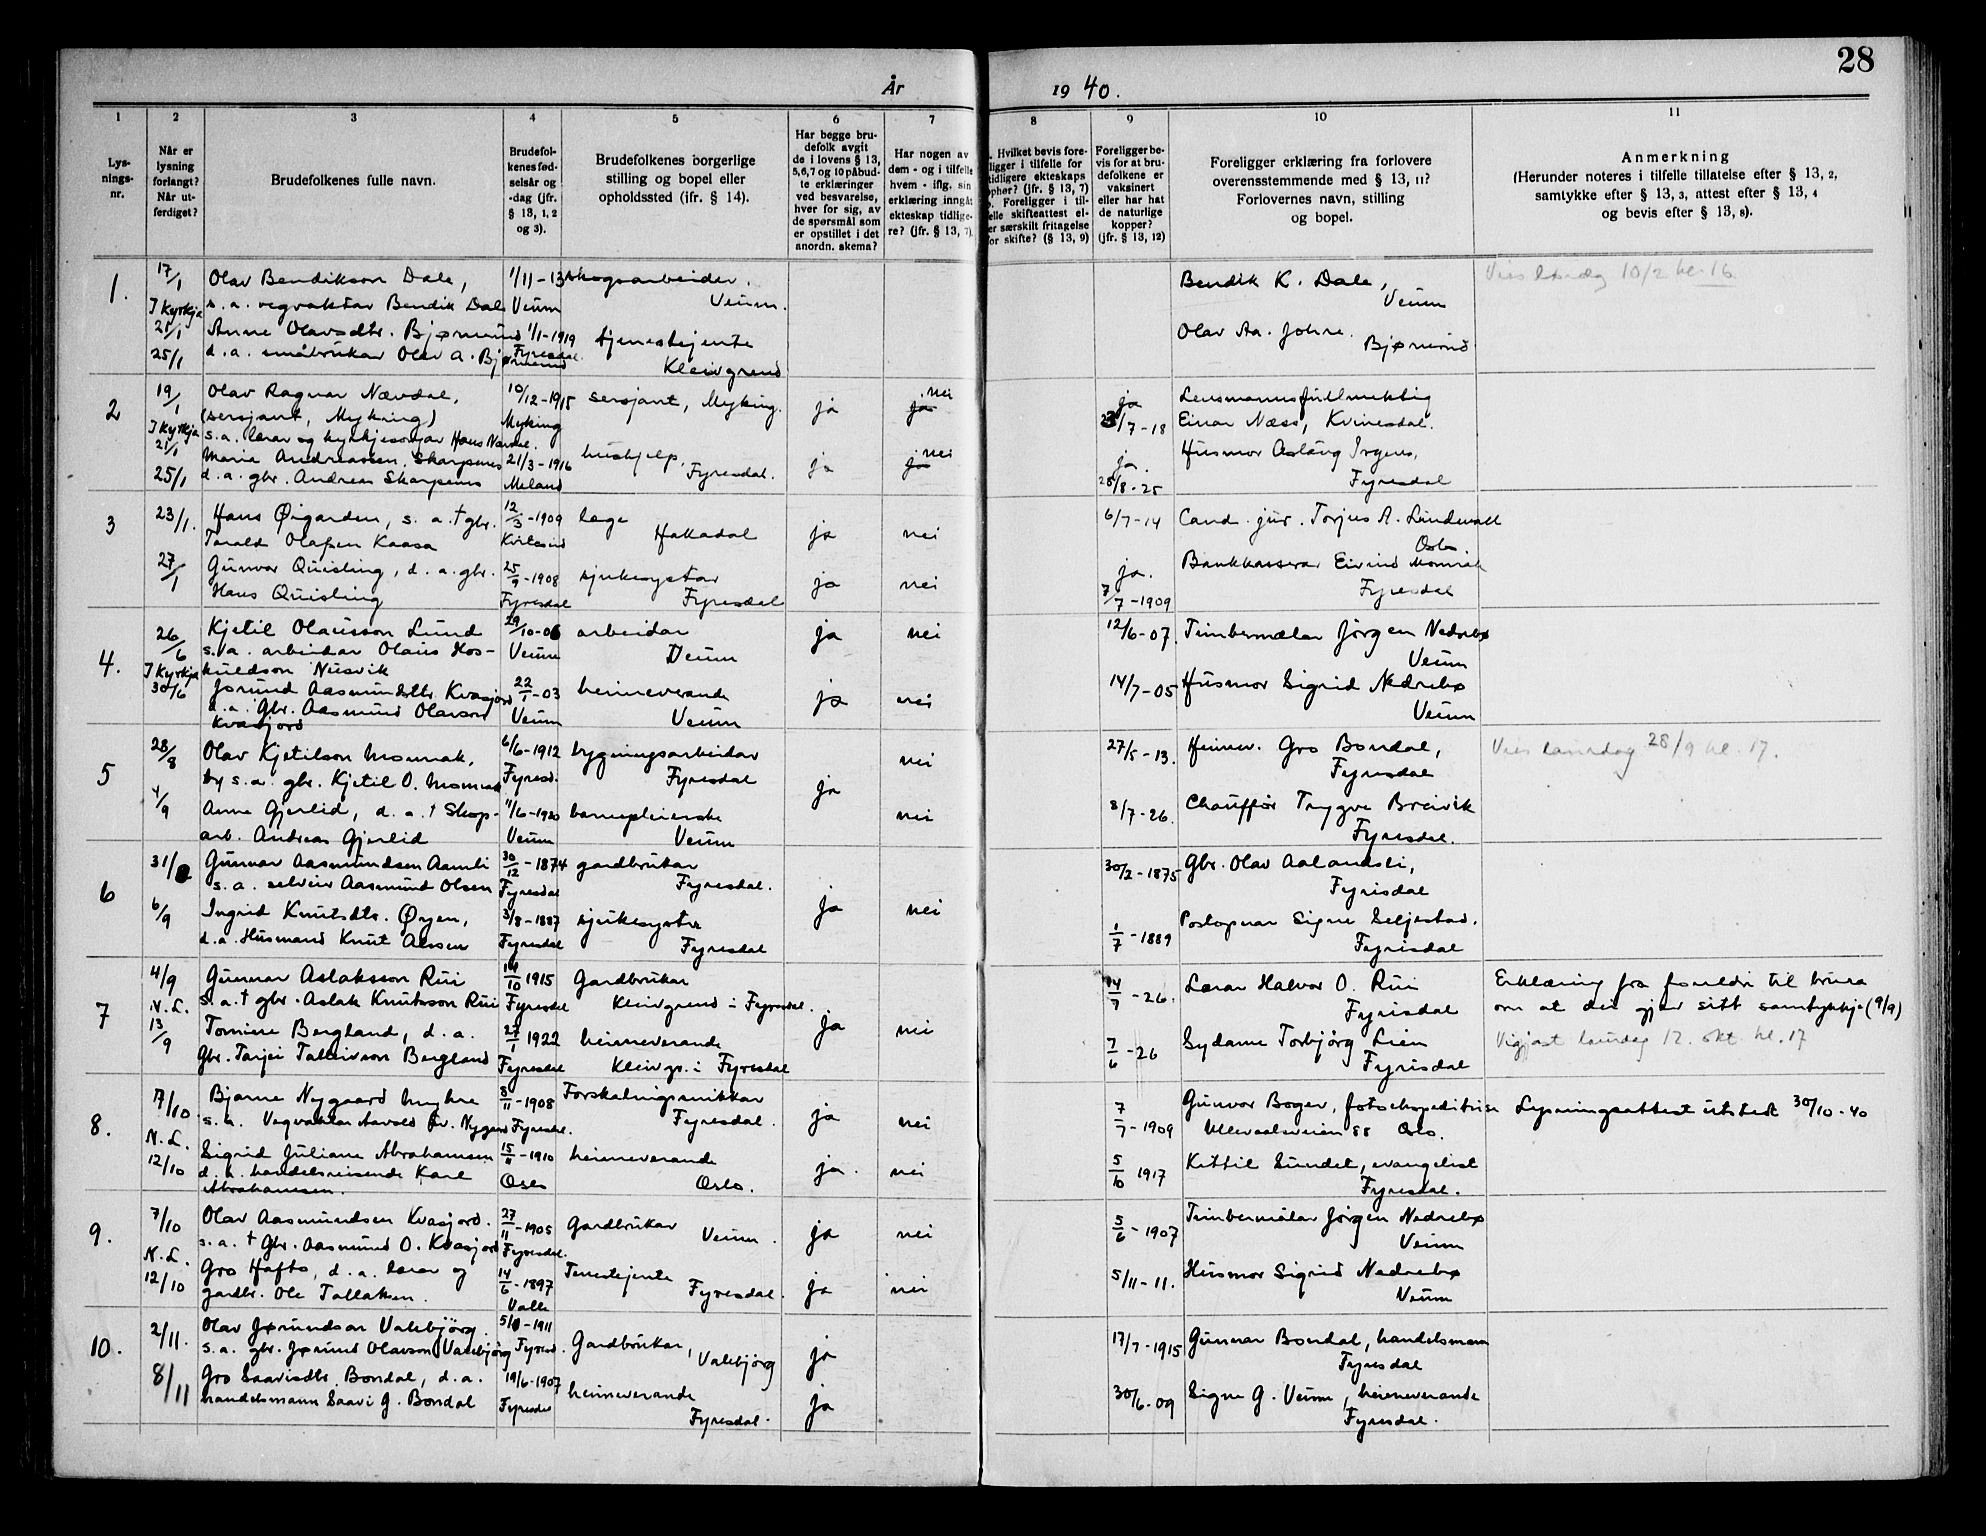 28
År 1940.
1 2 3 4 5 6 7 8 9 10 11
Lys-
nings-
nr.
Når er
lysning
forlangt?
Når ut-
ferdiget?
Brudefolkenes fulle navn.
Brudefol-
kenes fød-
selsår og
-dag (jfr.
§ 13, 1, 2
og 3).
Brudefolkenes borgerlige
stilling og bopel eller
opholdssted (jfr. § 14).
Har begge bru-
defolk avgit
de i lovens § 13,
5,6,7 og 10 påbud-
te erklæringer
ved besvarelse,
hver for sig, av
de spørsmål som
er opstillet i det
anordn. skema?
Har nogen av
dem - og i tilfelle
hvem - iflg. sin
erklæring inngått
ekteskap tidlige-
re? (jfr. § 13, 7).
Hvilket bevis fore-
ligger i tilfelle for
tidligere ekteskaps
ophør? (jfr. § 13, 7)
Foreligger i til-
felle skifteattest el-
er særskilt fritagelse
for skifte? (§ 13, 9)
Foreligger be-
vis for at bru-
defolkene er
vaksinert
eller har hat
de naturlige
kopper?
(jfr. § 13, 12)
Foreligger erklæring fra forlovere
overensstemmende med § 13, 11?
Forlovernes navn, stilling
og bopel.
Anmerkning
(Herunder noteres i tilfelle tillatelse efter § 13, 2,
samtykke efter § 13, 3, attest efter § 13, 4
og bevis efter § 13, 8).
1. 17/1 Olav Bendikson Dale, 1/11-13 skogsarbeider. Bendik K. Dale, Vies laurdag 10/2 kl. 16.
I Kyrkja s. a. vegvaktar Bendik Dale Veum Veum. Veum
21/1 Anne Olavsdtr. Bjørnerud 1/1-1919 tjenestejente Olav Aa. Johre.
25/1 d. a. småbrukar Olav A. Bjørnerud Fyresdal. Kleivgrend Bjørnerud
2 19/1 Olav Ragnar Nævdal, 10/12-1915 sersjant, Myking. ja nei ja Lensmannsfullmektig
I Kyrkja (sersjant, Myking) Myking 23/7-18 Einar Næss, Kvinesdal.
21/1 s. a. lærar og kyrkjesongar Hans Nævdal.
Marie Andreassen Skarpenes 21/3-1916 hushjelp, ja nei ja. Husmor Aslaug Irgens,
25/1 d. a. gbr. Andreas Skarpenes Meland Fyresdal. 28/8-25 Fyresdal
3 23/1. Hans Øigarden, s. a. † gbr. 12/3-1909 læge ja nei 6/7-14 Cand. jur. Torjus A. Lindevall
Tarald Olafsen Kaasa Kviteseid Hakadal Oslo.
27/1 Gunvor Quisling, d. a. gbr. 25/9-1908 sjukesyster ja nei ja. Bankkasserar Eivind Momrak
Hans Quisling Fyresdal Fyresdal 7/7-1909 Fyresdal
4. 26/6 Kjetil Olausson Lund 29/10-06 arbeidar ja nei 12/6-07. Timbermælar Jørgen Nedrebø
I Kyrkja s. a. arbeidar Olaus Hos- Veum Veum Veum
kuldson Nusvik
30/6 Jorund Aasmundsdtr. Kvasjord 22/1-03 heimeverande ja nei 14/7-05 Husmor Sigrid Nedrebø
d. a. Gbr. Aasmund Olavson Veum Veum Veum
Kvasjord
5 28/8 Olav Kjetilson Momrak, 6/6-1912 bygningsarbeidar ja nei 27/5-13. Heimev. Gro Bondal, Vies laurdag 28/9 kl. 17.
s. a. gbr. Kjetil O. Momrak Fyresd. Fyresdal Fyresdal
4/9 Anne Gjerlid, d. a. † Skog- 11/6-1920 barnepleierske nei 8/7-26. Chauffør Trygve Breivik
arb. Andreas Gjerlid Veum Veum Fyresdal.
6 31/8 Gunnar Aasmundsen Aamli 30/12-1874 gardbrukar ja nei 30/2-1875 Gbr. Olav Aalandsli,
s. a. selveier Aasmund Olsen Fyresdal Fyresdal. Fyrisdal
6/9 Ingrid Knutsdtr. Øyen, 3/8-1887 sjukesyster 1/7-1889 Postopnar Signe Seljestad.
d. a. Husmand Knut Aassen Fyresdal Fyresdal Fyrisdal
7 4/9 Gunnar Aslaksson Rui 14/10 1915 Gardbrukar ja nei 14/7-26. Lærar Halvor O. Rui Erklæring fra foreldre til brura
N. L. s. a. † gbr. Aslak Knutsson Rui Fyresdal Kleivgrend i Fyresdal. Fyrisdal om at dei gjer sitt samtykkje (9/9)
13/9 Tomine Bergland, d. a. 27/1 1922 heimeverande 7/6-26 Sydame Torbjørg Lien Vigjast laurdag 12. okt. kl. 17
Gbr. Tarjei Talleivson Bergland Fyresdal Kleivgr. i Fyresdal Fyrisdal
8. 7/10. Bjarne Nygaard Myhre 8/11-1908 Forskalingssnikkar ja nei 7/7-1909 Gunvor Boger, fotoekspeditrise Lysningsattest utstedt 30/10-40
N. L. s. a. Vegvakter Fyresdal. Fyresdal. Ullevaalsveien 88 Oslo.
12/10 Sigrid Juliane Abrahamsen 15/11-1910 heimeverande ja. nei 5/10 1917 Kittil Sundet, evangelist
d. a. handelsreisende Karl Oslo Oslo. Fyresdal.
Abrahamsen.
9. 7/10 Olav Aasmundsen Kvasjord. 27/11-1905 Gardbrukar ja nei 5/6-1907 Timbermålar Jørgen Nedrebø
N. L. s. a. † Gbr. Aasmund O. Kvasjord Fyresdal. Veum. Veum
12/10 Gro Hafto, d. a. lærar og 14/6-1897 Tenestejente ja nei 5/11-11. Husmor Sigrid Nedrebø
gardbr. Ole Tallaksen. Valle Fyresdal. Veum
10. 2/11. Olav Jørundson Valebjörg 5/-1911 Gardbrukar, ja 17/7-1915 Gunnar Bondal, handelsmann
s. a. gbr. Jørund Olavson Valebjörg Fyresd. Valebjörg Fyresdal
8/11 Gro Saavisdtr. Bondal, d. a. 19/6-1907 heimeverande ja 30/6-09 Signe G. Veum, heimeverande
handelsmann Saavi G. Bondal Fyresdal Fyresdal. Fyresdal.